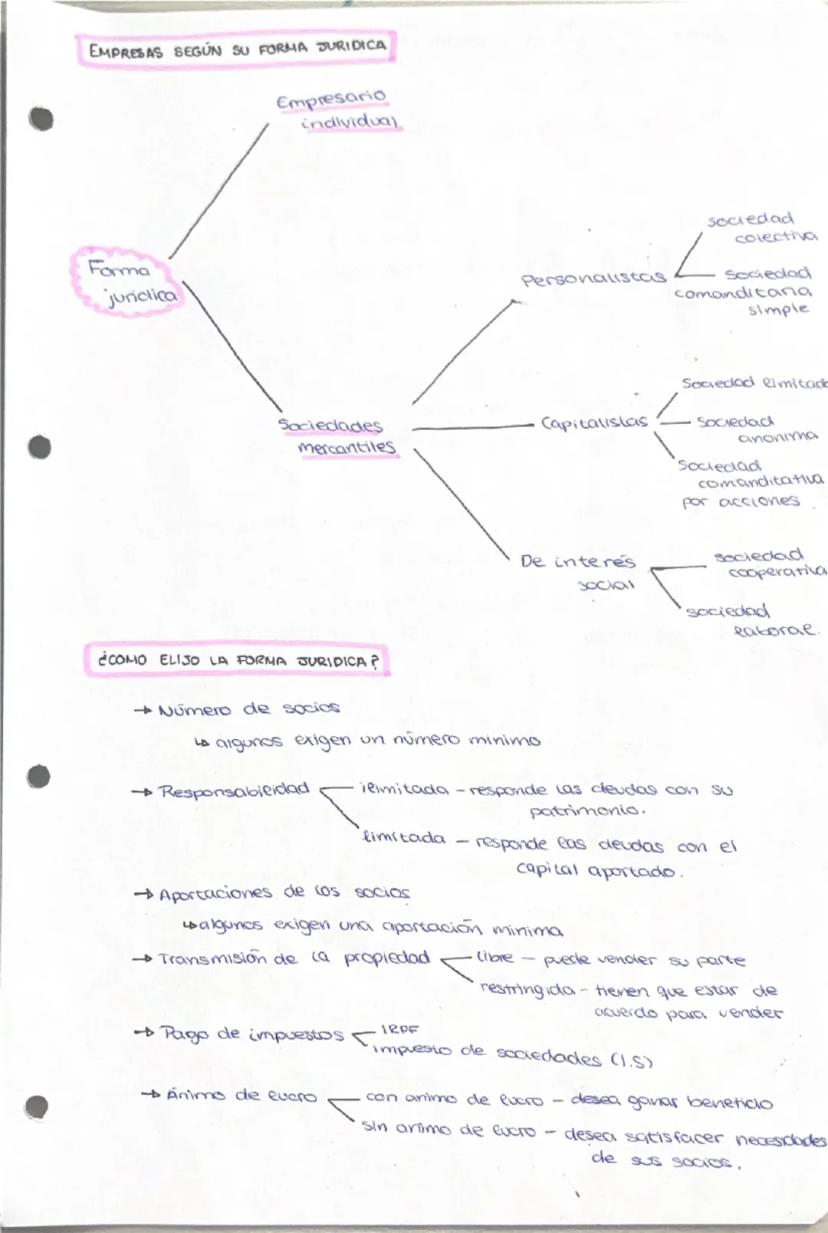 EMPRESAS SEGÚN SU FORMA JURIDICA
Empresario
individual
Forma
jurídica
Sociedades
mercantiles
Personalistas
sociedad
colectiva
sociedad
comanditaria
simple
Capitalistas
Sociedad limitada
Sociedad
anonima
Sociedad
comanditativa
por acciones.
De interés
social
sociedad
cooperativa
sociedad
laboral.
¿COMO ELIJO LA FORMA JURIDICA?
→ Número de socios
↳ algunos exigen un número minimo
→ Responsabilidad
ilimitada - responde las deudas con su
patrimonio.
limitada - responde las deudas con el
capital aportado.
→ Aportaciones de los socios
↳ algunos exigen una aportación minima
→ Transmisión de la propiedad
libre - puede vender su parte
restringida - tienen que estar de
acuerdo para vender
→ Pago de impuestos
IRPF
impuesto de sociedades (I.S)
→ Ánimo de lucro
con animo de lucro - desea ganar beneficio
sin animo de lucro - desea satisfacer necesidades
de sus socios.